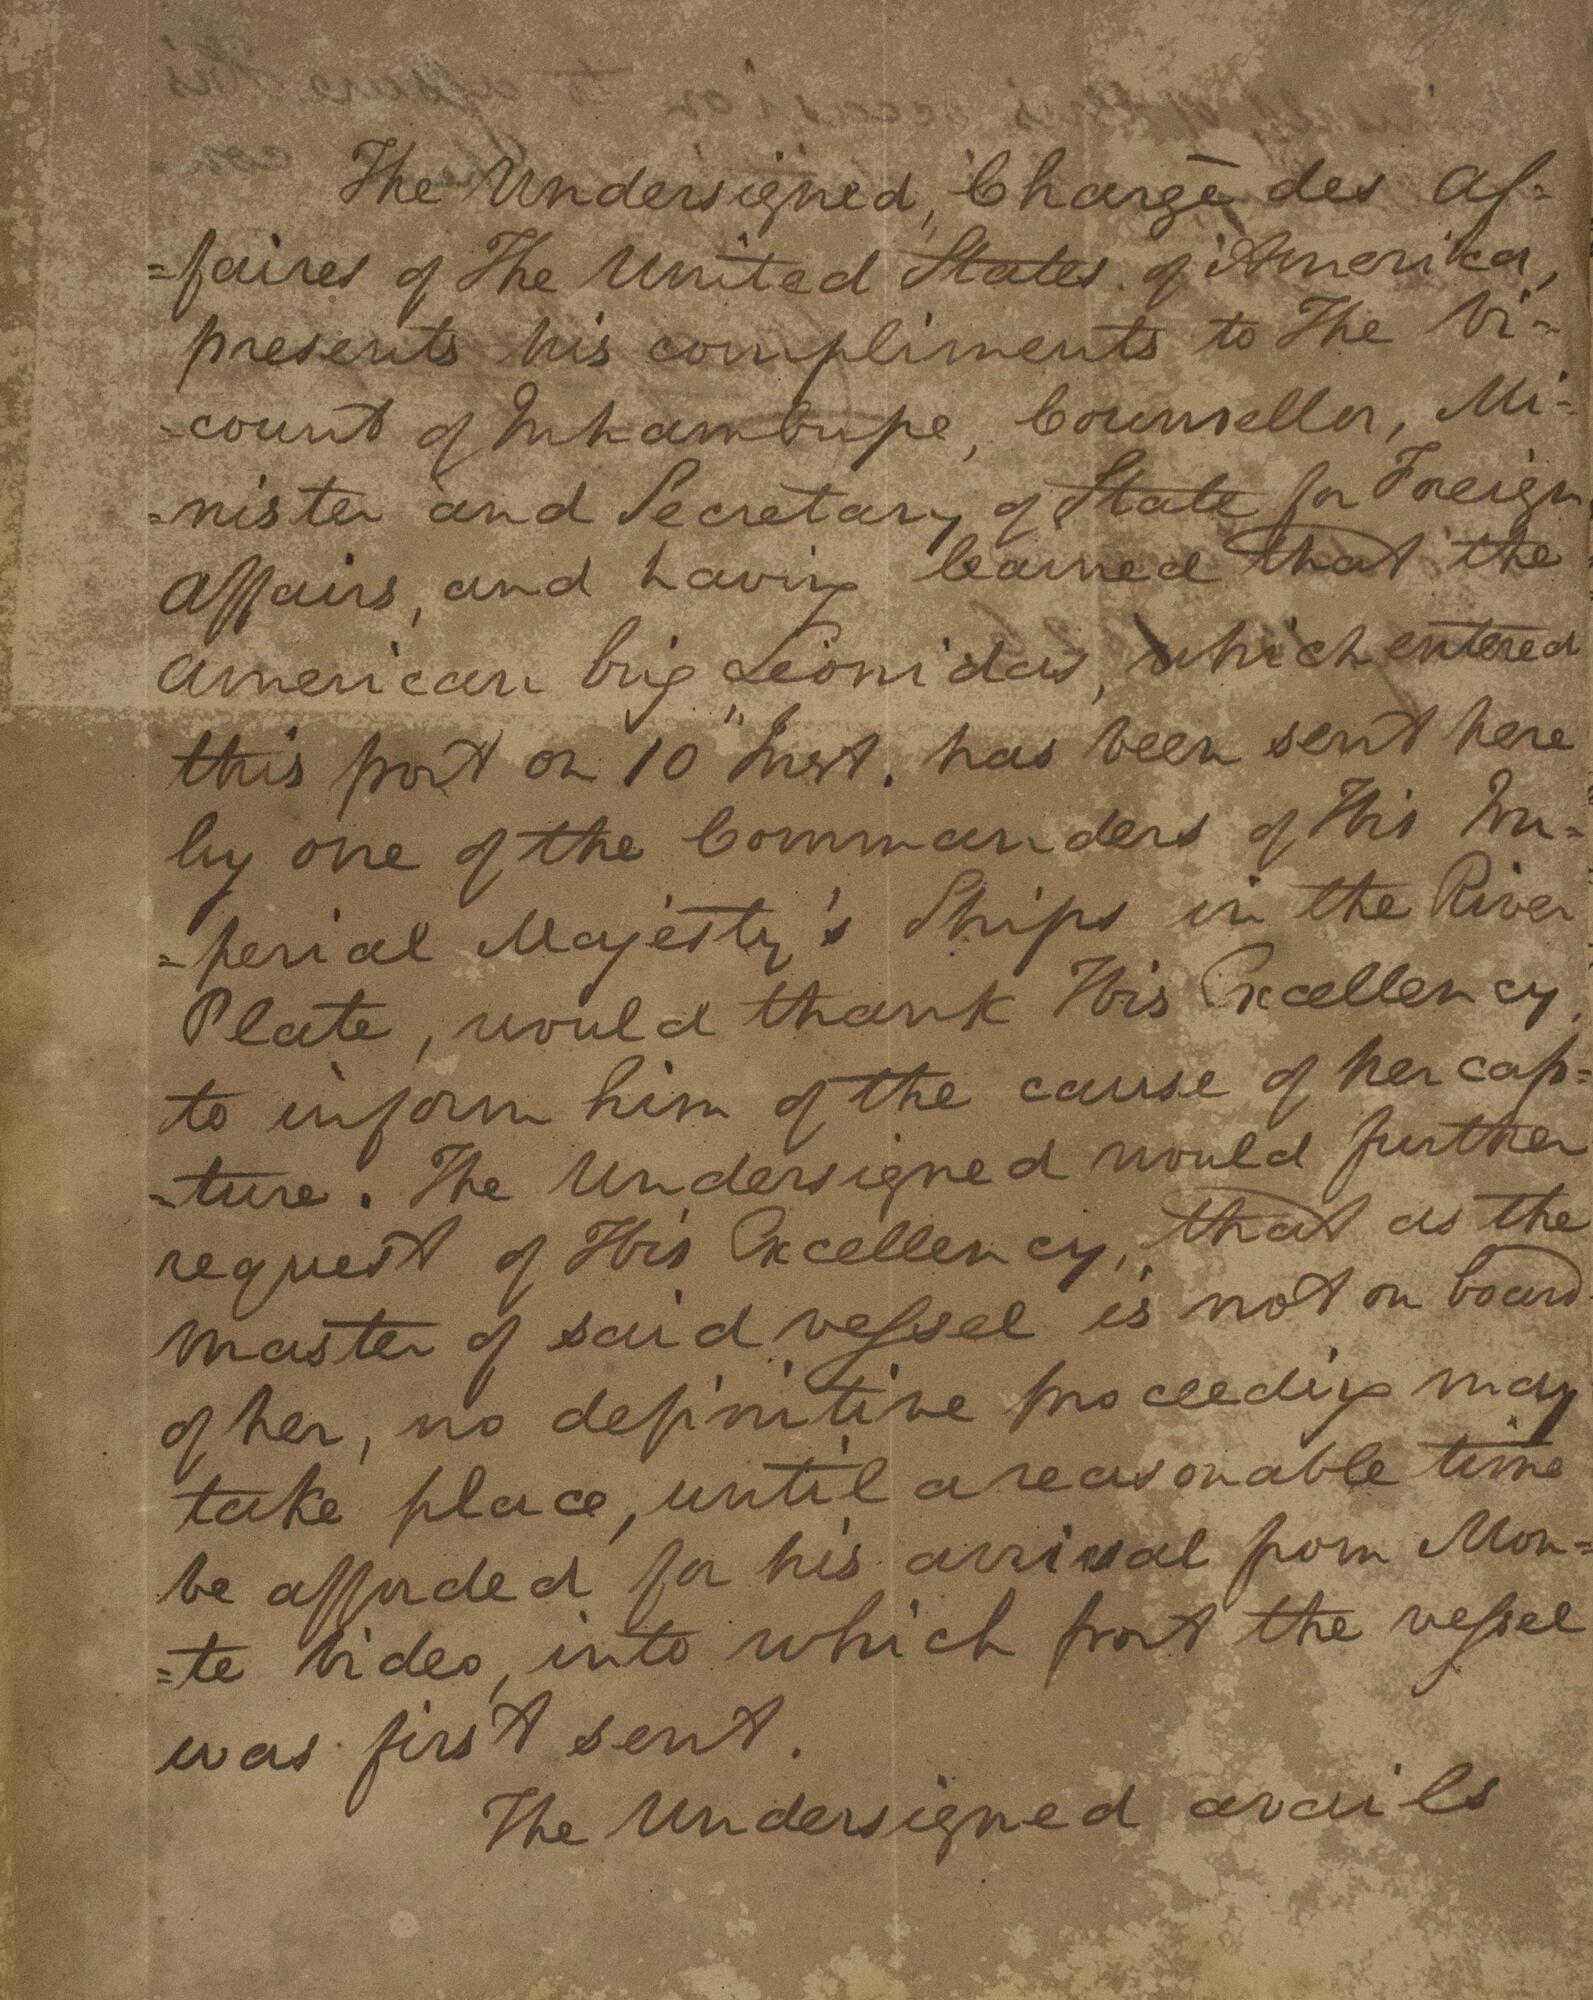 The Undersigned, Chargé des Af-
=faires of The United States of America,
presents his compliments to The Vi-
-count of Inhambupe, Counsellor, Mi-
=nister and Secretary of State for Foreign
Affairs, and having learned that the
American brig Leonidas, which entered
this port on 10" Inst. has been sent here
by one of the Commanders of His Im-
=perial Majesty's Ships in the River
Plate, would thank His Excellency,
to inform him of the cause of her cap-
-ture. The Undersigned would further
request of His Excellency, that as the
master of said vessel is not on board
of her, no definitive proceeding may
take place, until a reasonable time
be afforded for his arrival from Mon-
=te Video, into which port the vessel
was first sent.
The Undersigned avails